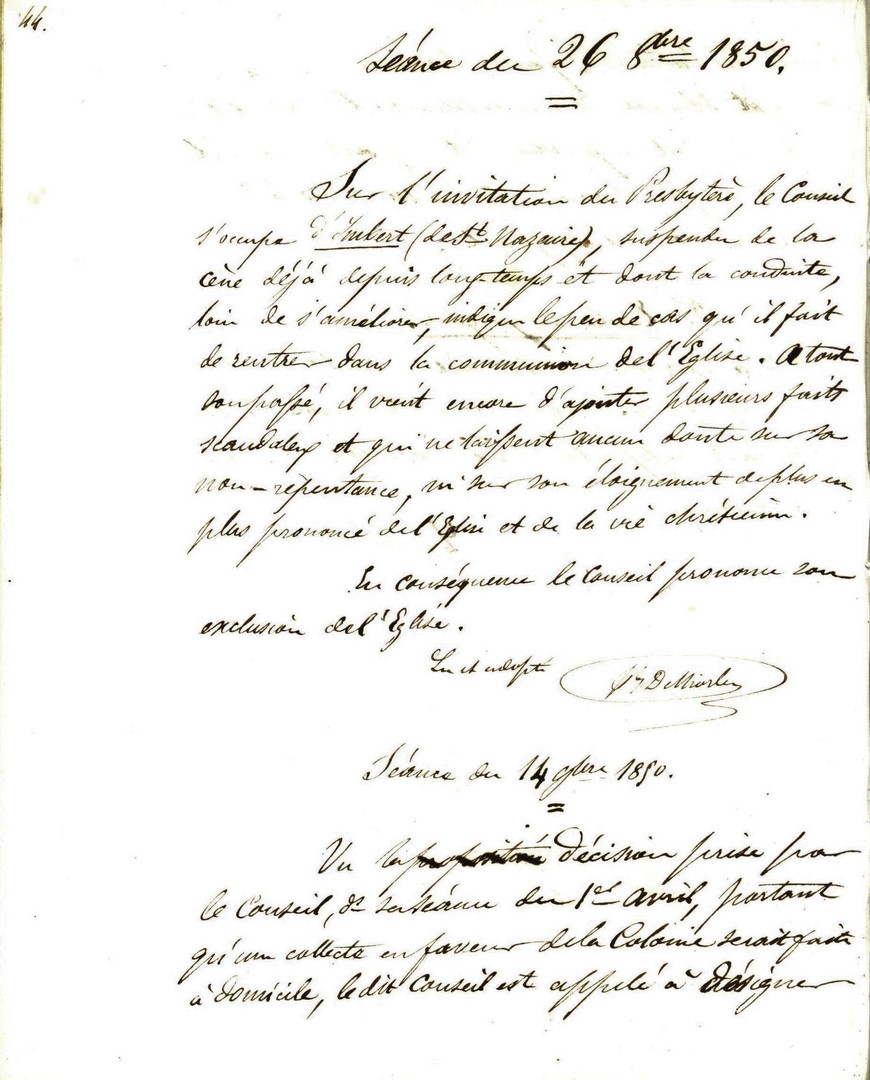 44.
Séance du 26 8bre 1850.
Sur l'invitation du Presbytère, le Conseil
s'occupe d'Imbert (de St Nazaire), suspendu de la
cène déjà depuis long-temps et dont la conduite,
loin de s'améliorer, indique le peu de cas qu'il fait
de rentrer dans la communion de l'Eglise. A tout
son passé, il vient encore d'ajouter plusieurs faits
scandaleux et qui ne laissent aucun doute sur sa
non-répentance, ni sur son éloignement de plus en
plus prononcé de l'Eglise et de la vie chrétienne.
En conséquence le Conseil prononce son
exclusion de l'Eglise.
Lu et adopté
Séance du 14 9bre 1850.
Vu la proposition décision prise par
le Conseil, ds sa séance du 1er avril, portant
qu'une collecte en faveur de la Colonie serait faite
à domicile, le dit Conseil est appelé à désigner